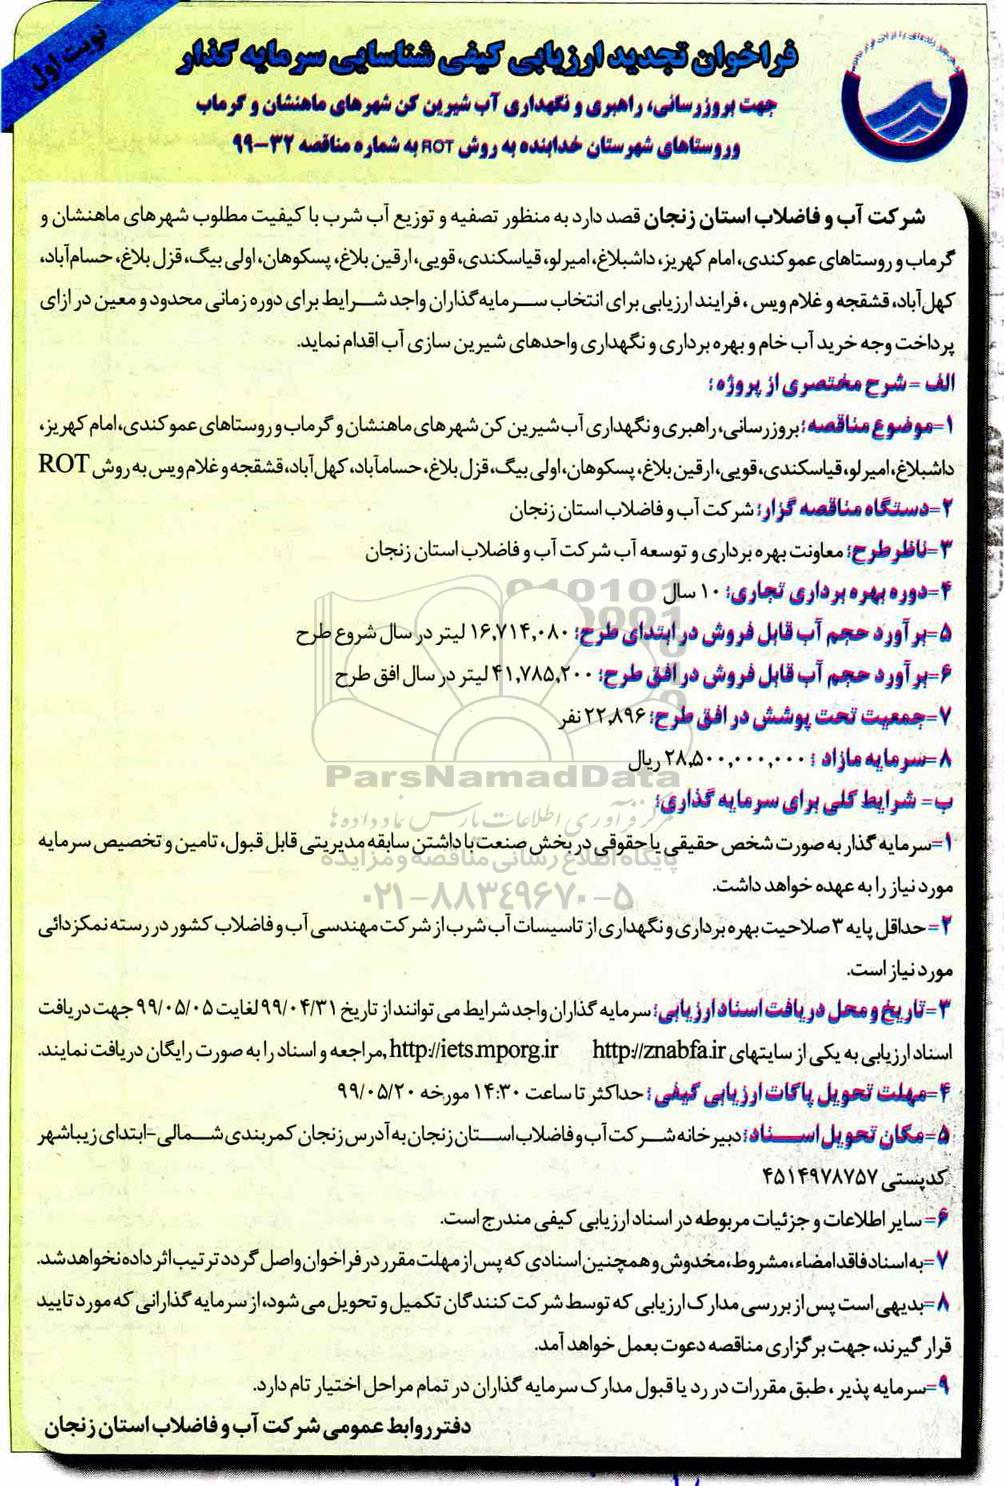 نوبت اول
فراخوان تجدید ارزیابی کیفی شناسایی سرمایه گذار
جهت بروزرسانی، راهبری و نگهداری آب شیرین کن شهرهای ماهنشان و گرماب
وروستاهای شهرستان خدابنده به روش ROT به شماره مناقصه ۳۲-۹۹
شرکت آب و فاضلاب استان زنجان قصد دارد به منظور تصفیه و توزیع آب شرب با کیفیت مطلوب شهرهای ماهنشان و
گرماب و روستاهای عموکندی، امام کهریز، داشبلاغ، امیرلو، قیاسکندی، قویی، ارقین بلاغ، پسکوهان، اولی بیگ، قزل بلاغ، حسام‌آباد،
کهل‌آباد، قشقجه و غلام ویس ، فرایند ارزیابی برای انتخاب سرمایه‌گذاران واجد شرایط برای دوره زمانی محدود و معین در ازای
پرداخت وجه خرید آب خام و بهره برداری و نگهداری واحدهای شیرین سازی آب اقدام نماید.
الف = شرح مختصری از پروژه :
۱=موضوع مناقصه: بروزرسانی، راهبری و نگهداری آب شیرین کن شهرهای ماهنشان و گرماب و روستاهای عموکندی، امام کهریز،
داشبلاغ، امیرلو، قیاسکندی، قویی، ارقین بلاغ، پسکوهان، اولی بیگ، قزل بلاغ، حسامآباد، کهل آباد، قشقجه و غلام ویس به روش ROT
۲=دستگاه مناقصه گزار: شرکت آب و فاضلاب استان زنجان
۳=ناظر طرح: معاونت بهره برداری و توسعه آب شرکت آب و فاضلاب استان زنجان
۴=دوره بهره برداری تجاری: ۱۰ سال
۵=برآورد حجم آب قابل فروش در ابتدای طرح: ۱۶,۷۱۴,۰۸۰ لیتر در سال شروع طرح
۶=برآورد حجم آب قابل فروش در افق طرح: ۴۱,۷۸۵,۲۰۰ لیتر در سال افق طرح
۷=جمعیت تحت پوشش در افق طرح: ۲۲,۸۹۶ نفر
۸=سرمایه مازاد : ۲۸,۵۰۰,۰۰۰,۰۰۰ ریال
ParsNamadData
ب= شرایط کلی برای سرمایه گذاری:
مرکز فرآوری اطلاعات پارس نماد داده ها
۱=سرمایه گذار به صورت شخص حقیقی یا حقوقی در بخش صنعت با داشتن سابقه مدیریتی قابل قبول، تامین و تخصیص سرمایه
پایگاه اطلاع رسانی مناقصه و مزایده
مورد نیاز را به عهده خواهد داشت.
۰۲۱-۸۸۳۴۹۶۷۰-۵
۲= حداقل پایه ۳ صلاحیت بهره برداری و نگهداری از تاسیسات آب شرب از شرکت مهندسی آب و فاضلاب کشور در رسته نمکزدائی
مورد نیاز است.
۳=تاریخ و محل دریافت اسناد ارزیابی: سرمایه گذاران واجد شرایط می توانند از تاریخ ۹۹/۰۴/۳۱ لغایت ۹۹/۰۵/۰۵ جهت دریافت
اسناد ارزیابی به یکی از سایتهای http://znabfa.ir http://iets.mporg.ir ,مراجعه و اسناد را به صورت رایگان دریافت نمایند.
۴=مهلت تحویل پاکات ارزیابی کیفی : حداکثر تا ساعت ۱۴:۳۰ مورخه ۹۹/۰۵/۲۰
۵=مکان تحویل اسناد: دبیرخانه شرکت آب و فاضلاب استان زنجان به آدرس زنجان کمربندی شمالی-ابتدای زیباشهر
کدپستی ۴۵۱۴۹۷۸۷۵۷
۶= سایر اطلاعات و جزئیات مربوطه در اسناد ارزیابی کیفی مندرج است.
۷=به اسناد فاقد امضاء، مشروط، مخدوش و همچنین اسنادی که پس از مهلت مقرر در فراخوان واصل گردد ترتیب اثر داده نخواهد شد.
۸=بدیهی است پس از بررسی مدارک ارزیابی که توسط شرکت کنندگان تکمیل و تحویل می شود، از سرمایه گذارانی که مورد تایید
قرار گیرند، جهت برگزاری مناقصه دعوت بعمل خواهد آمد.
۹=سرمایه پذیر ، طبق مقررات در رد یا قبول مدارک سرمایه گذاران در تمام مراحل اختیار تام دارد.
دفتر روابط عمومی شرکت آب و فاضلاب استان زنجان